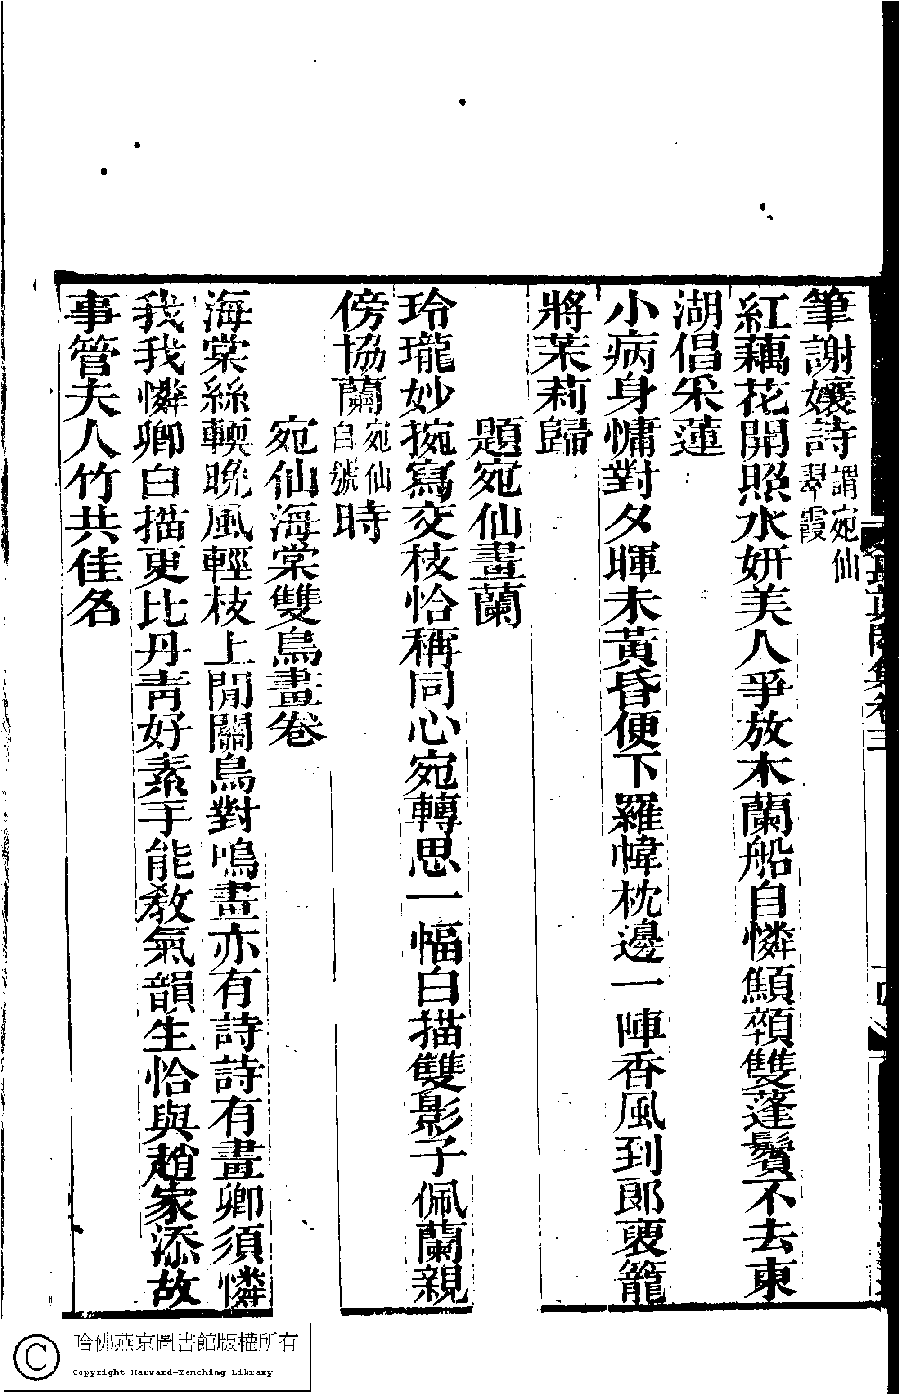 筆謝孃詩謂宛仙翠霞
紅藕花開照水妍美人爭放木蘭船自憐顦顇雙蓬鬢不去東
湖倡采蓮
小病身慵對夕暉未黃昏便下羅幃枕邊一陣香風到郎裏籠
將茉莉歸
題宛仙畫蘭
玲瓏妙捥寫交枝恰稱同心宛轉思一幅白描雙影子佩蘭親
傍協蘭宛仙自號時
宛仙海棠雙鳥畫卷
海棠絲輭晚風輕枝上閒關鳥對鳴畫亦有詩詩有畫卿須憐
我我憐卿白描更比丹靑好素手能敎氣韻生恰與趙家添故
事管夫人竹共佳名
哈佛燕京圖書館版權所有
Copyright Harvard-Yenching Library